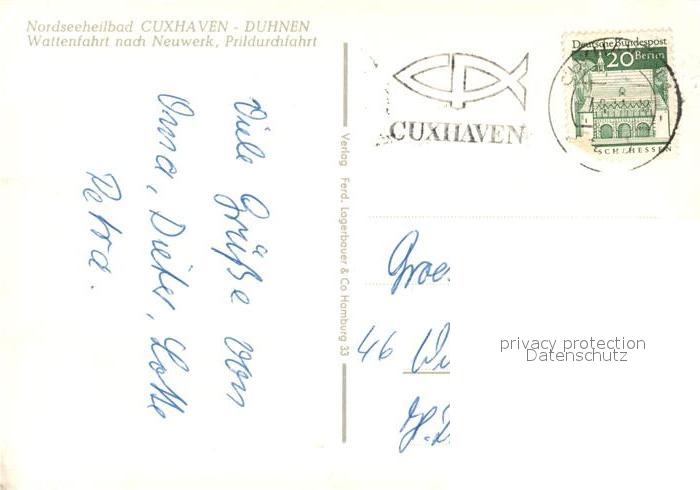 Nordseeheilbad CUXHAVEN - DUHNEN
Wattenfahrt nach Neuwerk, Prildurchfahrt
Viele Grüße von
Oma, Dieter, Lotte
Petra.
Verlag Ferd. Lagerbauer & Co Hamburg 33
CUXHAVEN
Deutsche Bundespost
20 Berlin
46
privacy protection
Datenschutz